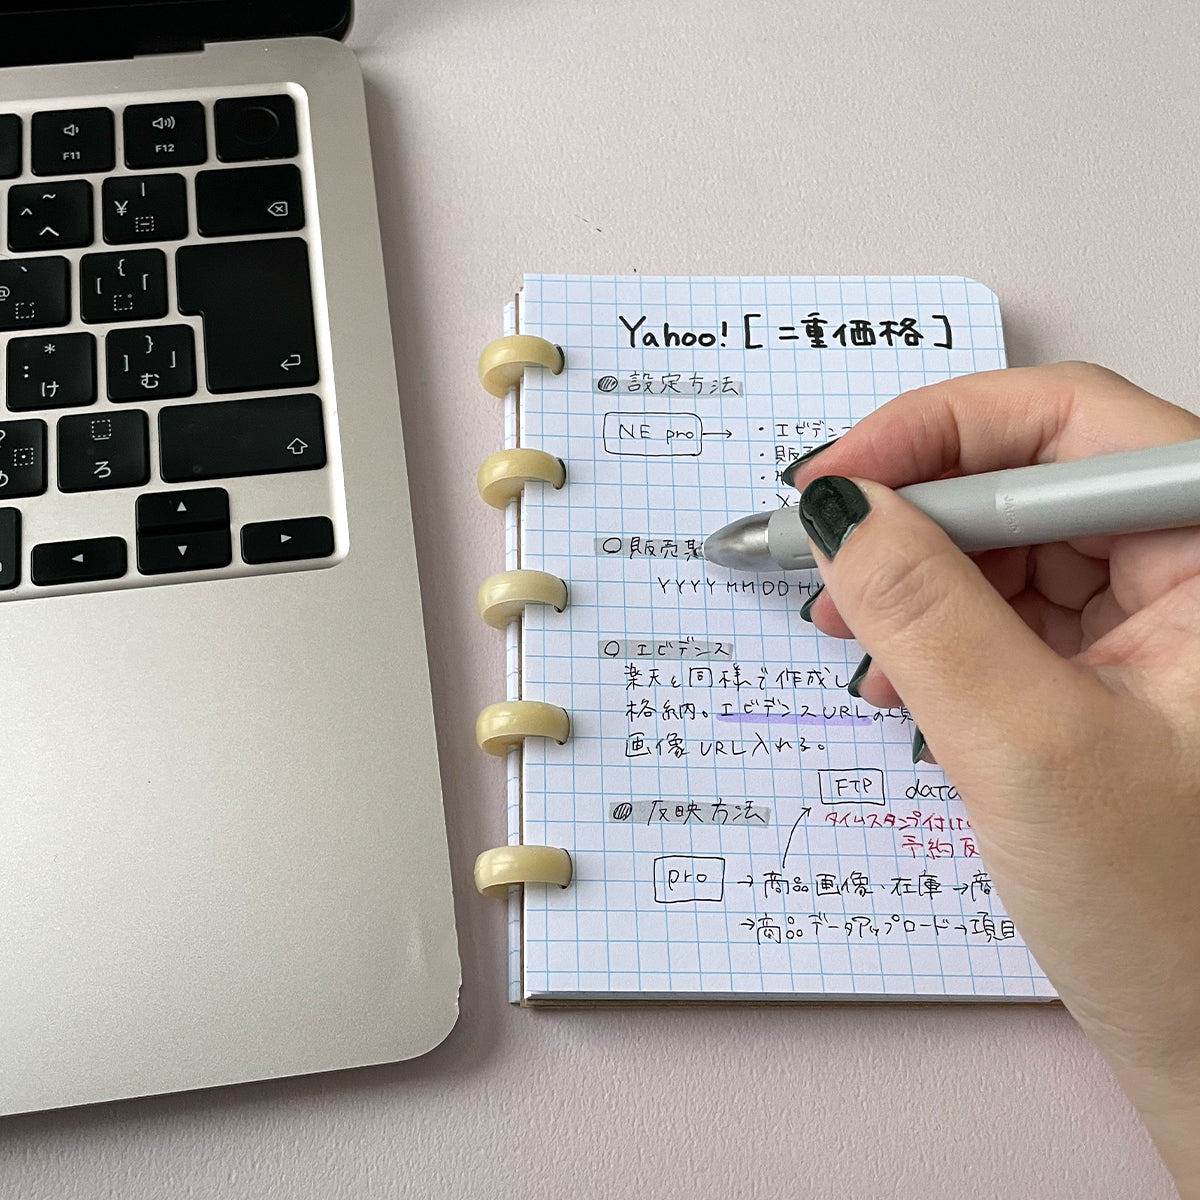 F11
F12
¥
け
む
ろ
Yahoo! [二重価格]
設定方法
NE pro →
・エビデン
・販
・
・メ
○販売期
YYYYMMDDH
○エビデンス
楽天と同様で作成し
格納。エビデンスURLの項
画像URL入れる。
FTP data
タイムスタンプ付け
予約反
反映方法
pro → 商品画像・在庫 → 商
→ 商品データアップロード → 項目
JAPAN